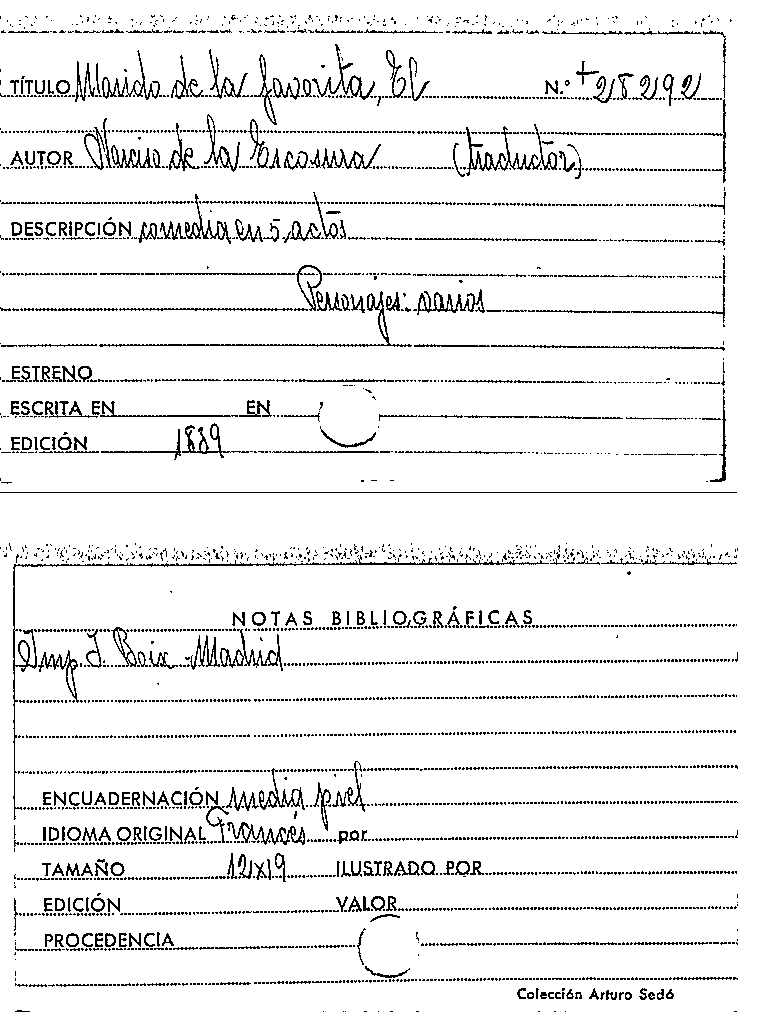 TÍTULO Marido de la favorita, El N.º +28292
AUTOR Narciso de la Escosura (traductor)
DESCRIPCIÓN comedia en 5 actos
Personajes: varios
ESTRENO
ESCRITA EN EN
EDICIÓN 1889
NOTAS BIBLIOGRÁFICAS
Imp. I. Boix - Madrid
ENCUADERNACIÓN media piel
IDIOMA ORIGINAL Francés por
TAMAÑO 12x19 ILUSTRADO POR
EDICIÓN VALOR
PROCEDENCIA
Colección Arturo Sedó